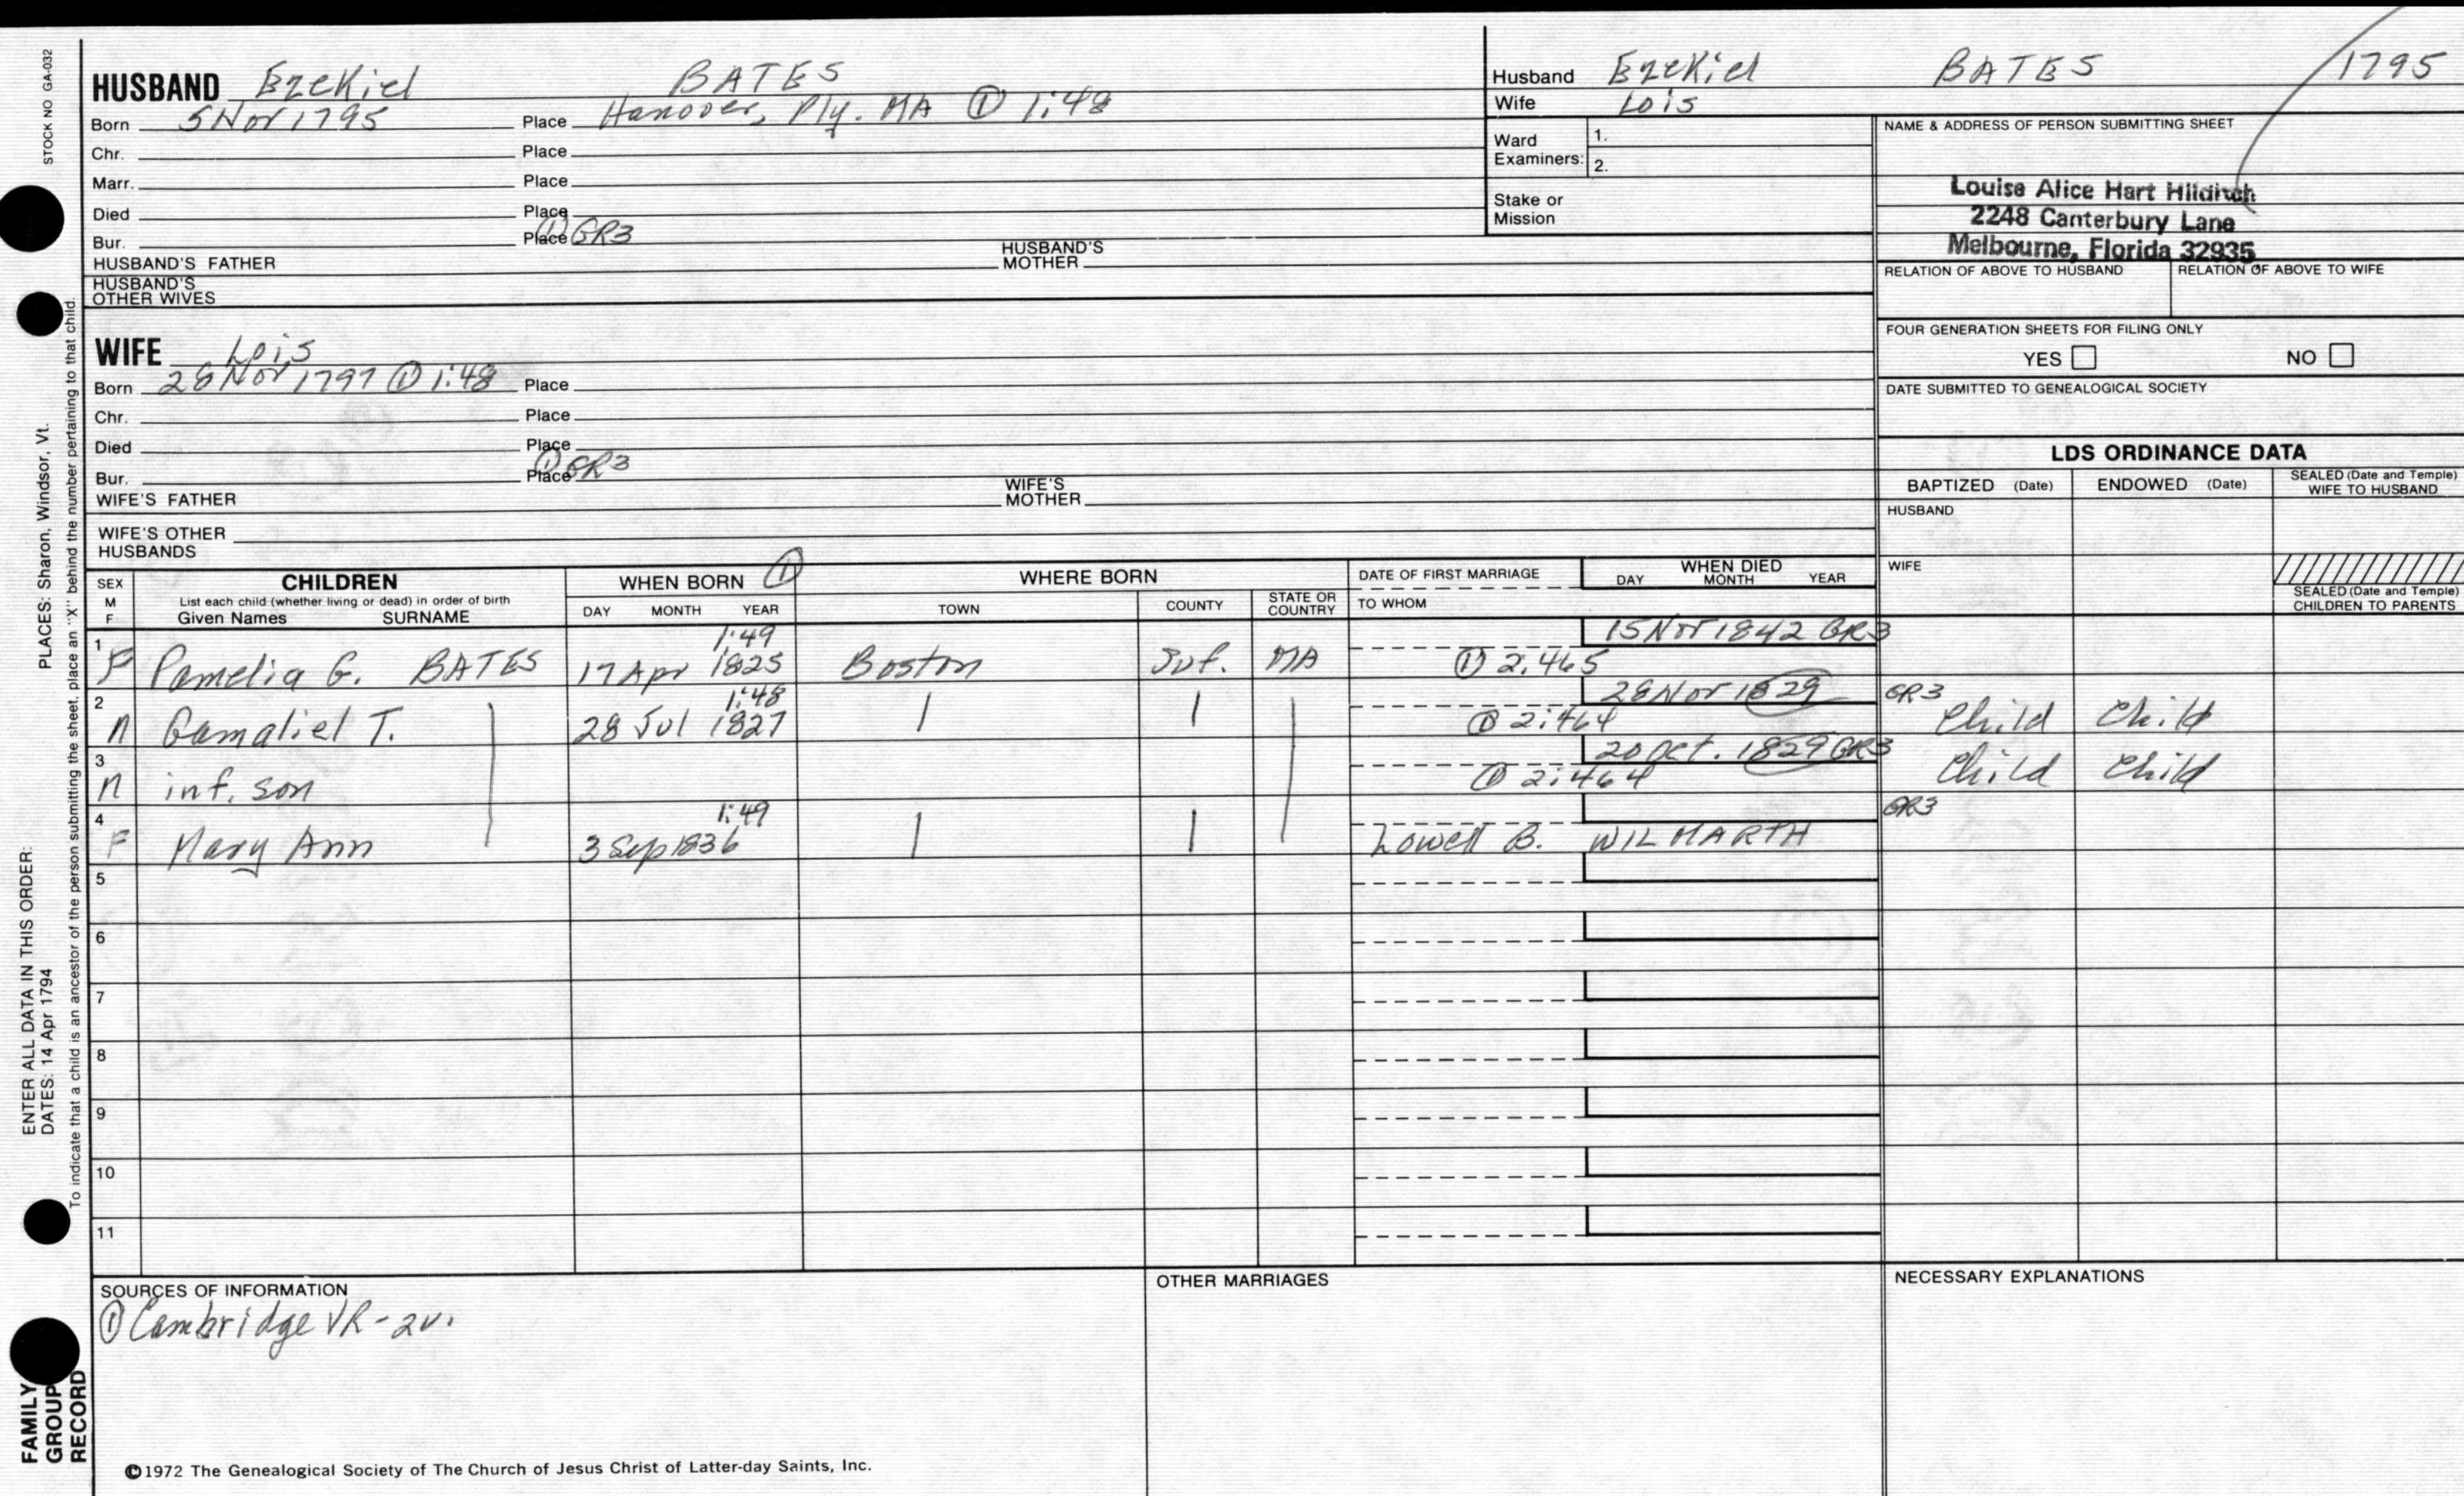 STOCK NO GA-032
HUSBAND Ezekiel BATES
Born 5 Nov 1795 Place Hanover, Ply. MA ① 1:48
Chr. Place
Marr. Place
Died Place
Bur. Place ① GR3
HUSBAND'S FATHER HUSBAND'S MOTHER
HUSBAND'S OTHER WIVES
Husband Ezekiel BATES 1795
Wife Lois
Ward Examiners: 1.
2.
Stake or Mission
NAME & ADDRESS OF PERSON SUBMITTING SHEET
Louise Alice Hart Hilditch
2248 Canterbury Lane
Melbourne, Florida 32935
RELATION OF ABOVE TO HUSBAND RELATION OF ABOVE TO WIFE
FOUR GENERATION SHEETS FOR FILING ONLY
YES NO
DATE SUBMITTED TO GENEALOGICAL SOCIETY
WIFE Lois
Born 28 Nov 1797 ① 1:48 Place
Chr. Place
Died Place
Bur. Place ① GR3
WIFE'S FATHER WIFE'S MOTHER
WIFE'S OTHER HUSBANDS
LDS ORDINANCE DATA
BAPTIZED (Date) ENDOWED (Date) SEALED (Date and Temple) WIFE TO HUSBAND
HUSBAND
WIFE
SEALED (Date and Temple) CHILDREN TO PARENTS
SEX M F
CHILDREN
List each child (whether living or dead) in order of birth
Given Names SURNAME
WHEN BORN ①
DAY MONTH YEAR
WHERE BORN
TOWN COUNTY STATE OR COUNTRY
DATE OF FIRST MARRIAGE
TO WHOM
WHEN DIED
DAY MONTH YEAR
1:49 15 Nov 1842 GR3
1 F Pamelia G. BATES 17 Apr 1825 Boston Suf. MA ① 2:465
1:48 28 Nov 1829 GR3
2 M Gamaliel T. 28 Jul 1827 | | ① 2:464 Child Child
20 Oct. 1829 GR3
3 M inf. son ① 2:464 Child Child
1:49 GR3
4 F Mary Ann 3 Sep 1836 | | Lowell B. WILMARTH
5
6
7
8
9
10
11
SOURCES OF INFORMATION
① Cambridge VR - 2v.
OTHER MARRIAGES
NECESSARY EXPLANATIONS
©1972 The Genealogical Society of The Church of Jesus Christ of Latter-day Saints, Inc.
ENTER ALL DATA IN THIS ORDER:
DATES: 14 Apr 1794 PLACES: Sharon, Windsor, Vt.
To indicate that a child is an ancestor of the person submitting the sheet, place an "X" behind the number pertaining to that child.
FAMILY
GROUP
RECORD